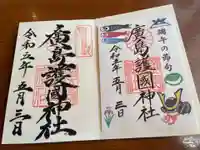 廣島護國神社
令和五年五月三日
端午の節句
廣島護國神社
令和五年五月三日